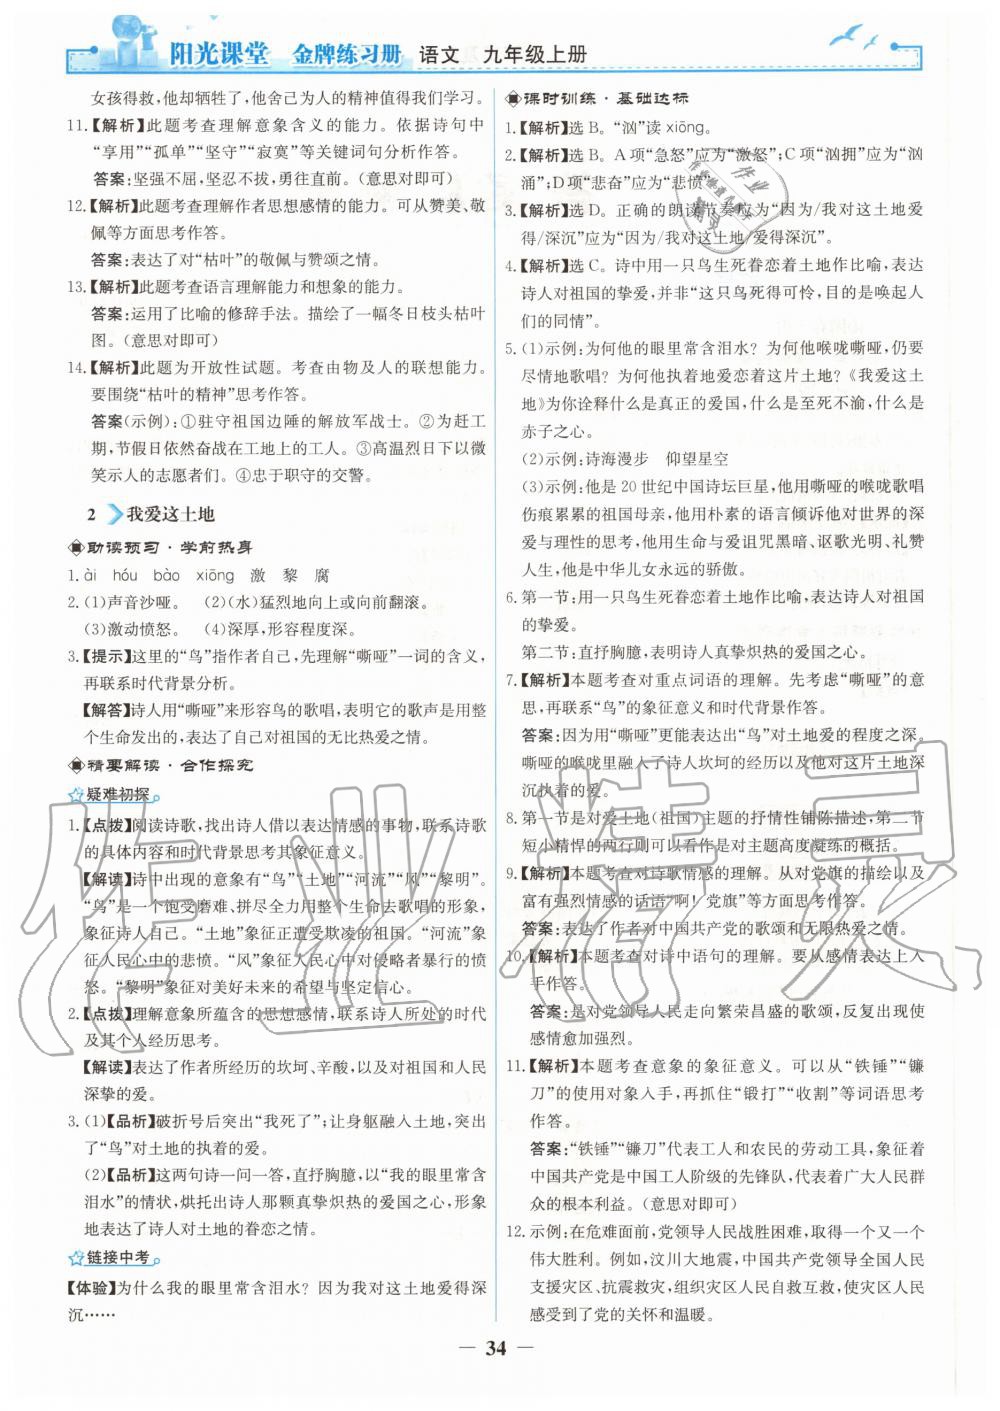 阳光课堂 金牌练习册 语文 九年级上册
女孩得救,他却牺牲了,他舍己为人的精神值得我们学习。
11.【解析】此题考查理解意象含义的能力。依据诗句中
“享用”“孤单”“坚守”“寂寞”等关键词句分析作答。
答案:坚强不屈,坚忍不拔,勇往直前。(意思对即可)
12.【解析】此题考查理解作者思想感情的能力。可从赞美、敬
佩等方面思考作答。
答案:表达了对“枯叶”的敬佩与赞颂之情。
13.【解析】此题考查语言理解能力和想象的能力。
答案:运用了比喻的修辞手法。描绘了一幅冬日枝头枯叶
图。(意思对即可)
14.【解析】此题为开放性试题。考查由物及人的联想能力。
要围绕“枯叶的精神”思考作答。
答案(示例):①驻守祖国边陲的解放军战士。②为赶工
期,节假日依然奋战在工地上的工人。③高温烈日下以微
笑示人的志愿者们。④忠于职守的交警。
2 我爱这土地
助读预习·学前热身
1. ài hóu bào xiōng 激 黎 腐
2. (1)声音沙哑。 (2)(水)猛烈地向上或向前翻滚。
(3)激动愤怒。 (4)深厚,形容程度深。
3.【提示】这里的“鸟”指作者自己,先理解“嘶哑”一词的含义,
再联系时代背景分析。
【解答】诗人用“嘶哑”来形容鸟的歌唱,表明它的歌声是用整
个生命发出的,表达了自己对祖国的无比热爱之情。
精要解读·合作探究
疑难初探
1.【点拨】阅读诗歌,找出诗人借以表达情感的事物,联系诗歌
的具体内容和时代背景思考其象征意义。
【解读】诗中出现的意象有“鸟”“土地”“河流”“风”“黎明”。
“鸟”是一个饱受磨难、拼尽全力用整个生命去歌唱的形象,
象征诗人自己。“土地”象征正遭受欺凌的祖国。“河流”象
征人民心中的悲愤。“风”象征人民心中对侵略者暴行的愤
怒。“黎明”象征对美好未来的希望与坚定信心。
2.【点拨】理解意象所蕴含的思想感情,联系诗人所处的时代
及其个人经历思考。
【解读】表达了作者所经历的坎坷、辛酸,以及对祖国和人民
深挚的爱。
3. (1)【品析】破折号后突出“我死了”;让身躯融入土地,突出
了“鸟”对土地的执着的爱。
(2)【品析】这两句诗一问一答,直抒胸臆,以“我的眼里常含
泪水”的情状,烘托出诗人那颗真挚炽热的爱国之心,形象
地表达了诗人对土地的眷恋之情。
链接中考
【体验】为什么我的眼里常含泪水? 因为我对这土地爱得深
沉……
课时训练·基础达标
1.【解析】选 B。“汹”读 xiōng。
2.【解析】选 B。A 项“急怒”应为“激怒”;C 项“汹拥”应为“汹
涌”;D 项“悲奋”应为“悲愤”
3.【解析】选 D。正确的朗读节奏应为“因为/我对这土地爱
得/深沉”应为“因为/我对这土地/爱得深沉”。
4.【解析】选 C。诗中用一只鸟生死眷恋着土地作比喻,表达
诗人对祖国的挚爱,并非“这只鸟死得可怜,目的是唤起人
们的同情”。
5. (1)示例:为何他的眼里常含泪水? 为何他喉咙嘶哑,仍要
尽情地歌唱? 为何他执着地爱恋着这片土地?《我爱这土
地》为你诠释什么是真正的爱国,什么是至死不渝,什么是
赤子之心。
(2)示例:诗海漫步 仰望星空
(3)示例:他是 20 世纪中国诗坛巨星,他用嘶哑的喉咙歌唱
伤痕累累的祖国母亲,他用朴素的语言倾诉他对世界的深
爱与理性的思考,他用生命与爱诅咒黑暗、讴歌光明、礼赞
人生,他是中华儿女永远的骄傲。
6. 第一节:用一只鸟生死眷恋着土地作比喻,表达诗人对祖国
的挚爱。
第二节:直抒胸臆,表明诗人真挚炽热的爱国之心。
7.【解析】本题考查对重点词语的理解。先考虑“嘶哑”的意
思,再联系“鸟”的象征意义和时代背景作答。
答案:因为用“嘶哑”更能表达出“鸟”对土地爱的程度之深。
嘶哑的喉咙里融入了诗人坎坷的经历以及他对这土地深
沉执着的爱。
8. 第一节是对爱土地(祖国)主题的抒情性铺陈描述,第二节
短小精悍的两行则可以看作是对主题高度凝练的概括。
9.【解析】本题考查对诗歌情感的理解。从对党旗的描绘以及
富有强烈情感的话语“啊! 党旗”等方面思考作答。
答案:表达了作者对中国共产党的歌颂和无限热爱之情。
10.【解析】本题考查对诗中语句的理解。要从情感表达上入
手作答。
答案:是对党领导人民走向繁荣昌盛的歌颂,反复出现使
感情愈加强烈。
11.【解析】本题考查意象的象征意义。可以从“铁锤”“镰
刀”的使用对象入手,再抓住“锻打”“收割”等词语思考
作答。
答案:“铁锤”“镰刀”代表工人和农民的劳动工具,象征着
中国共产党是中国工人阶级的先锋队,代表着广大人民群
众的根本利益。(意思对即可)
12. 示例:在危难面前,党领导人民战胜困难,取得一个又一个
伟大胜利。例如,汶川大地震,中国共产党领导全国人民
支援灾区、抗震救灾,组织灾区人民自救互救,使灾区人民
感受到了党的关怀和温暖。
— 34 —
作业精灵